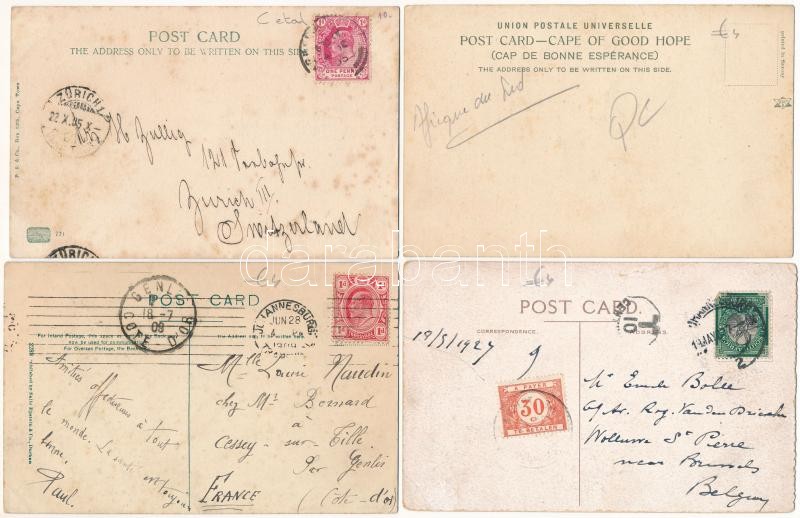 POST CARD
THE ADDRESS ONLY TO BE WRITTEN ON THIS SIDE
ONE PENNY
POSTAGE
ZÜRICH
22.X.05
H Zullig
121
Zurich III
Switzerland
771
ZÜRICH
UNION POSTALE UNIVERSELLE
POST CARD—CAPE OF GOOD HOPE
(CAP DE BONNE ESPÉRANCE)
THE ADDRESS ONLY TO BE WRITTEN ON THIS SIDE.
Afrique du Sud
POST CARD
GENLIS
18-7
09
COTE D'OR
JOHANNESBURG
JUN 28
For Inland Postage, this space
now be used for communication
For Overseas Postage, the
Amitiés affectueuses à tout
le monde. La santé est toujours
bonne.
Paul.
Mlle Laurie Naudin
chez Mr Bernard
à
Cessey-sur-Tille
par Genlis
FRANCE (Côte-d'or)
POST CARD.
CORRESPONDENCE.
ADDRESS.
T
19/5/1927
9
A PAYER
30
TE BETALEN
Mr Emile Bolle
Wolluwe St Pierre
near Brussels
Belgium
darabanth